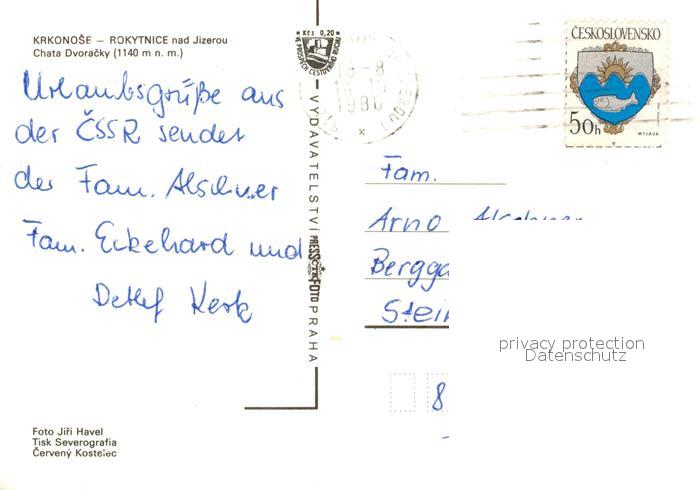 KRKONOŠE – ROKYTNICE nad Jizerou
Chata Dvoračky (1140 m n. m.)
Urlaubsgrüße aus
der ČSSR sendet
der Fam.
Fam. Eckehard und
Detlef
Kčs 0,20
VYDAVATELSTVÍ PRESSFOTO PRAHA
1986
ČESKOSLOVENSKO
50h
MYJAVA
Fam.
Arno
Bergga
Stein
8
privacy protection
Datenschutz
Foto Jiří Havel
Tisk Severografia
Červený Kostelec